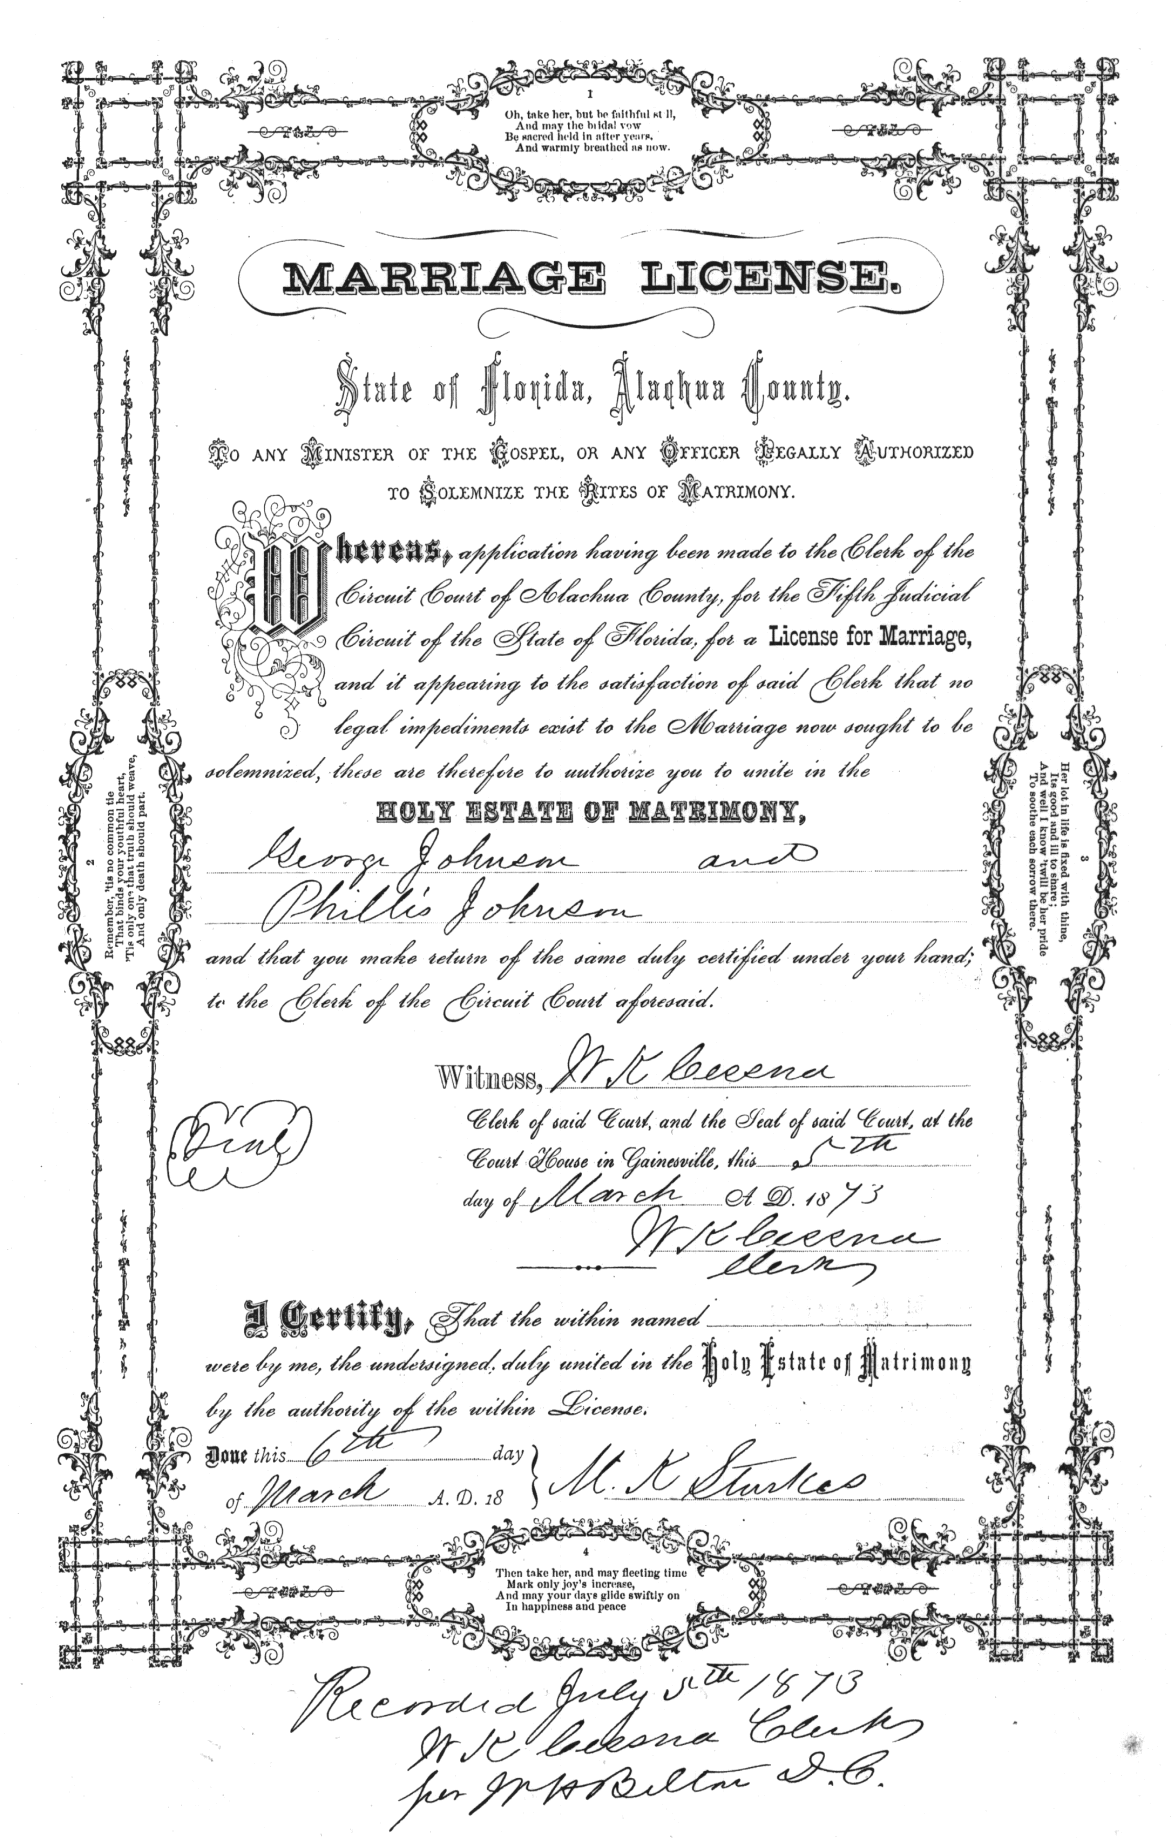 1
Oh, take her, but be faithful st ll,
And may the bridal vow
Be sacred held in after years,
And warmly breathed as now.
MARRIAGE LICENSE.
State of Florida, Alachua County.
TO ANY MINISTER OF THE GOSPEL, OR ANY OFFICER LEGALLY AUTHORIZED
TO SOLEMNIZE THE RITES OF MATRIMONY.
Whereas, application having been made to the Clerk of the
Circuit Court of Alachua County, for the Fifth Judicial
Circuit of the State of Florida, for a License for Marriage,
and it appearing to the satisfaction of said Clerk that no
legal impediments exist to the Marriage now sought to be
solemnized, these are therefore to authorize you to unite in the
HOLY ESTATE OF MATRIMONY,
George Johnson and
Phillis Johnson
and that you make return of the same duly certified under your hand;
to the Clerk of the Circuit Court aforesaid.
2
Remember, 'tis no common tie
That binds your youthful heart,
'Tis only one that truth should weave,
And only death should part.
3
Her lot in life is fixed with thine,
Its good and ill to share;
And well I know 'twill be her pride
To soothe each sorrow there.
Witness, W K Cessna
Clerk of said Court, and the Seal of said Court, at the
Court House in Gainesville, this 5th
day of March A D. 1873
W K Cessna
Clerk
Seal
I Certify, That the within named
were by me, the undersigned, duly united in the Holy Estate of Matrimony
by the authority of the within License.
Done this 6th day
of March A. D. 18
M. K Sturkes
4
Then take her, and may fleeting time
Mark only joy's increase,
And may your days glide swiftly on
In happiness and peace
Recorded July 5th 1873
W K Cessna Clerk
per W H Belton D. C.